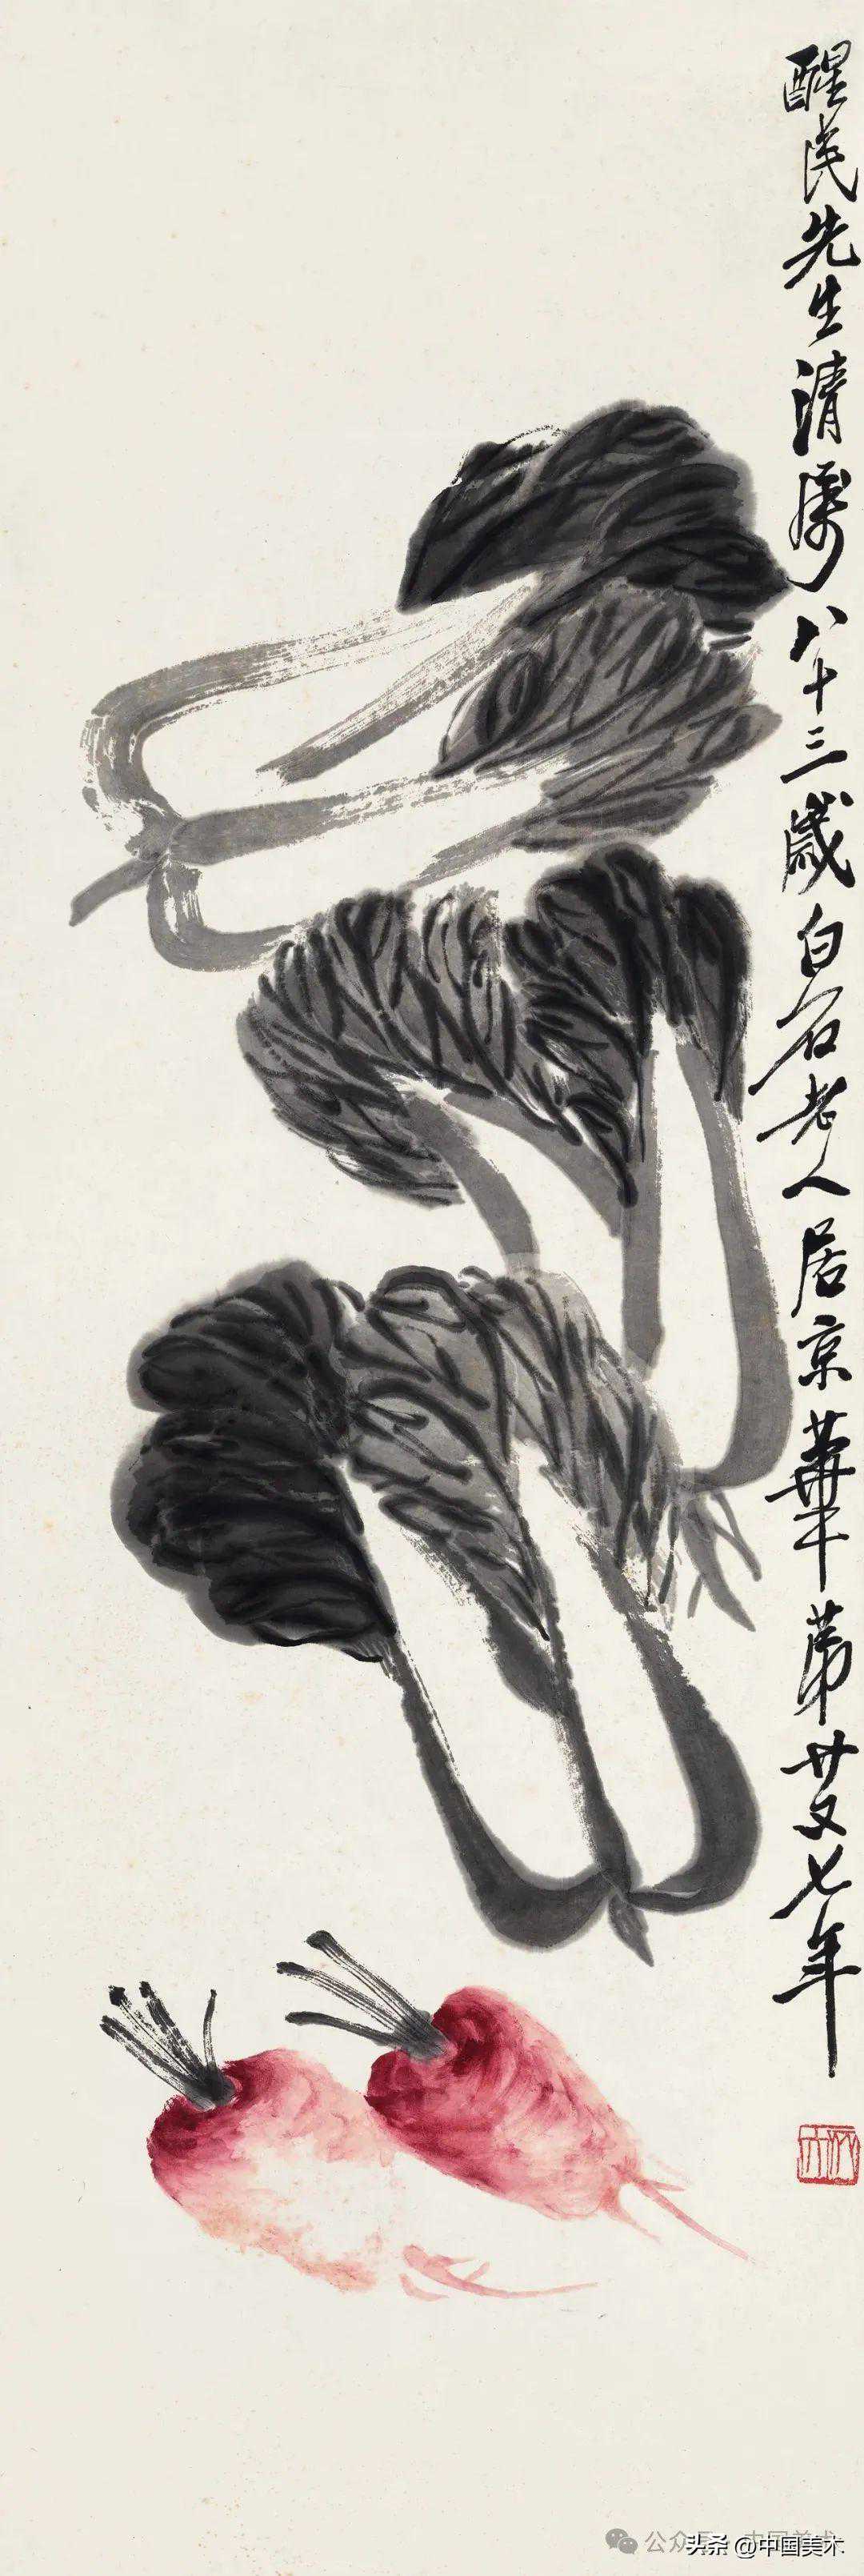 醒民先生清属八十三岁白石老人居京華第廿又七年
木人
公众号·中国美术
头条 @中国美术